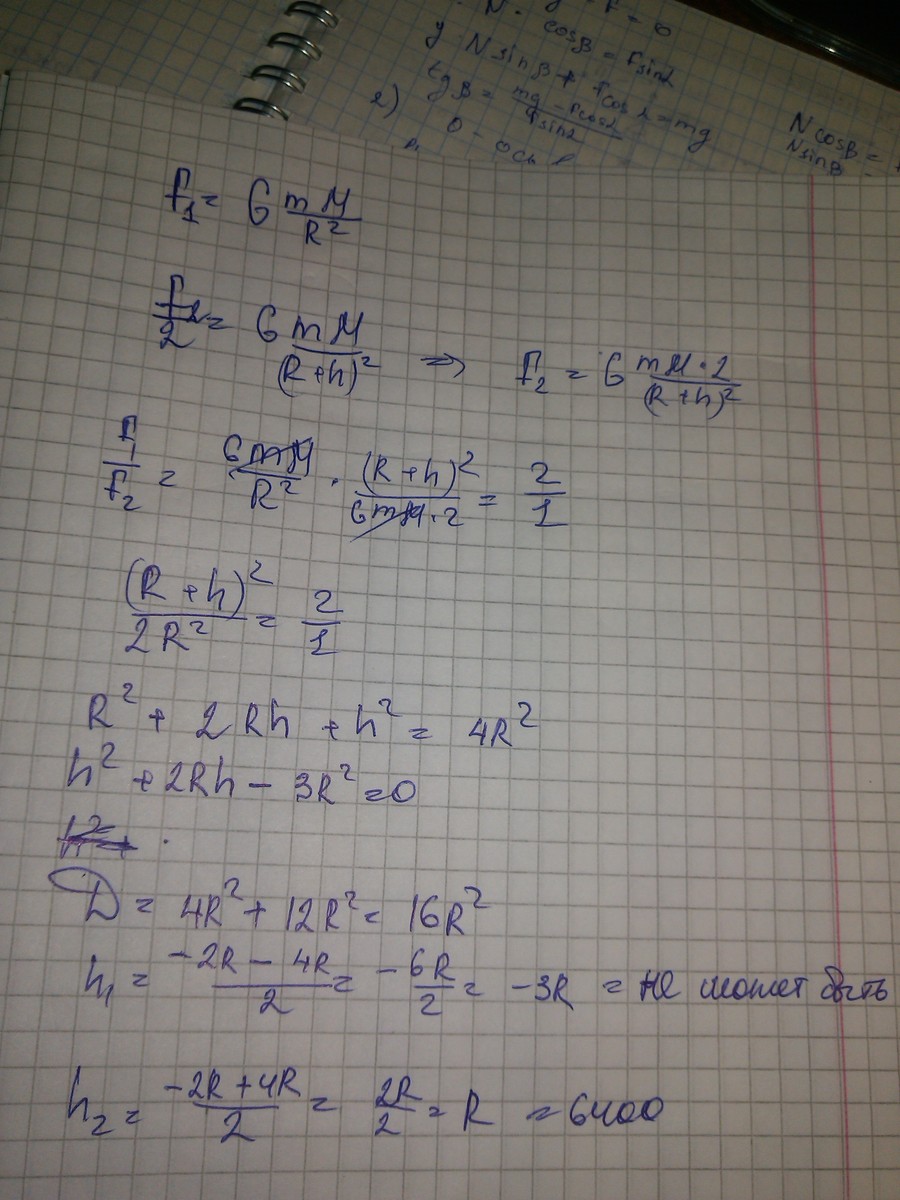 cosβ = Fsinα
y N sinβ + Fcosα = mg
tgβ = (mg - Fcosα)/(Fsinα)
2)
Ncosβ =
Nsinβ
F₁ = G mM/R²
F₂/2 = G mM/(R+h)² => F₂ = G mM·2/(R+h)²
F₁/F₂ = GmM/R² · (R+h)²/(GmM·2) = 2/1
(R+h)²/2R² = 2/1
R² + 2Rh + h² = 4R²
h² + 2Rh - 3R² = 0
D = 4R² + 12R² = 16R²
h₁ = (-2R - 4R)/2 = -6R/2 = -3R = не может быть
h₂ = (-2R + 4R)/2 = 2R/2 = R = 6400